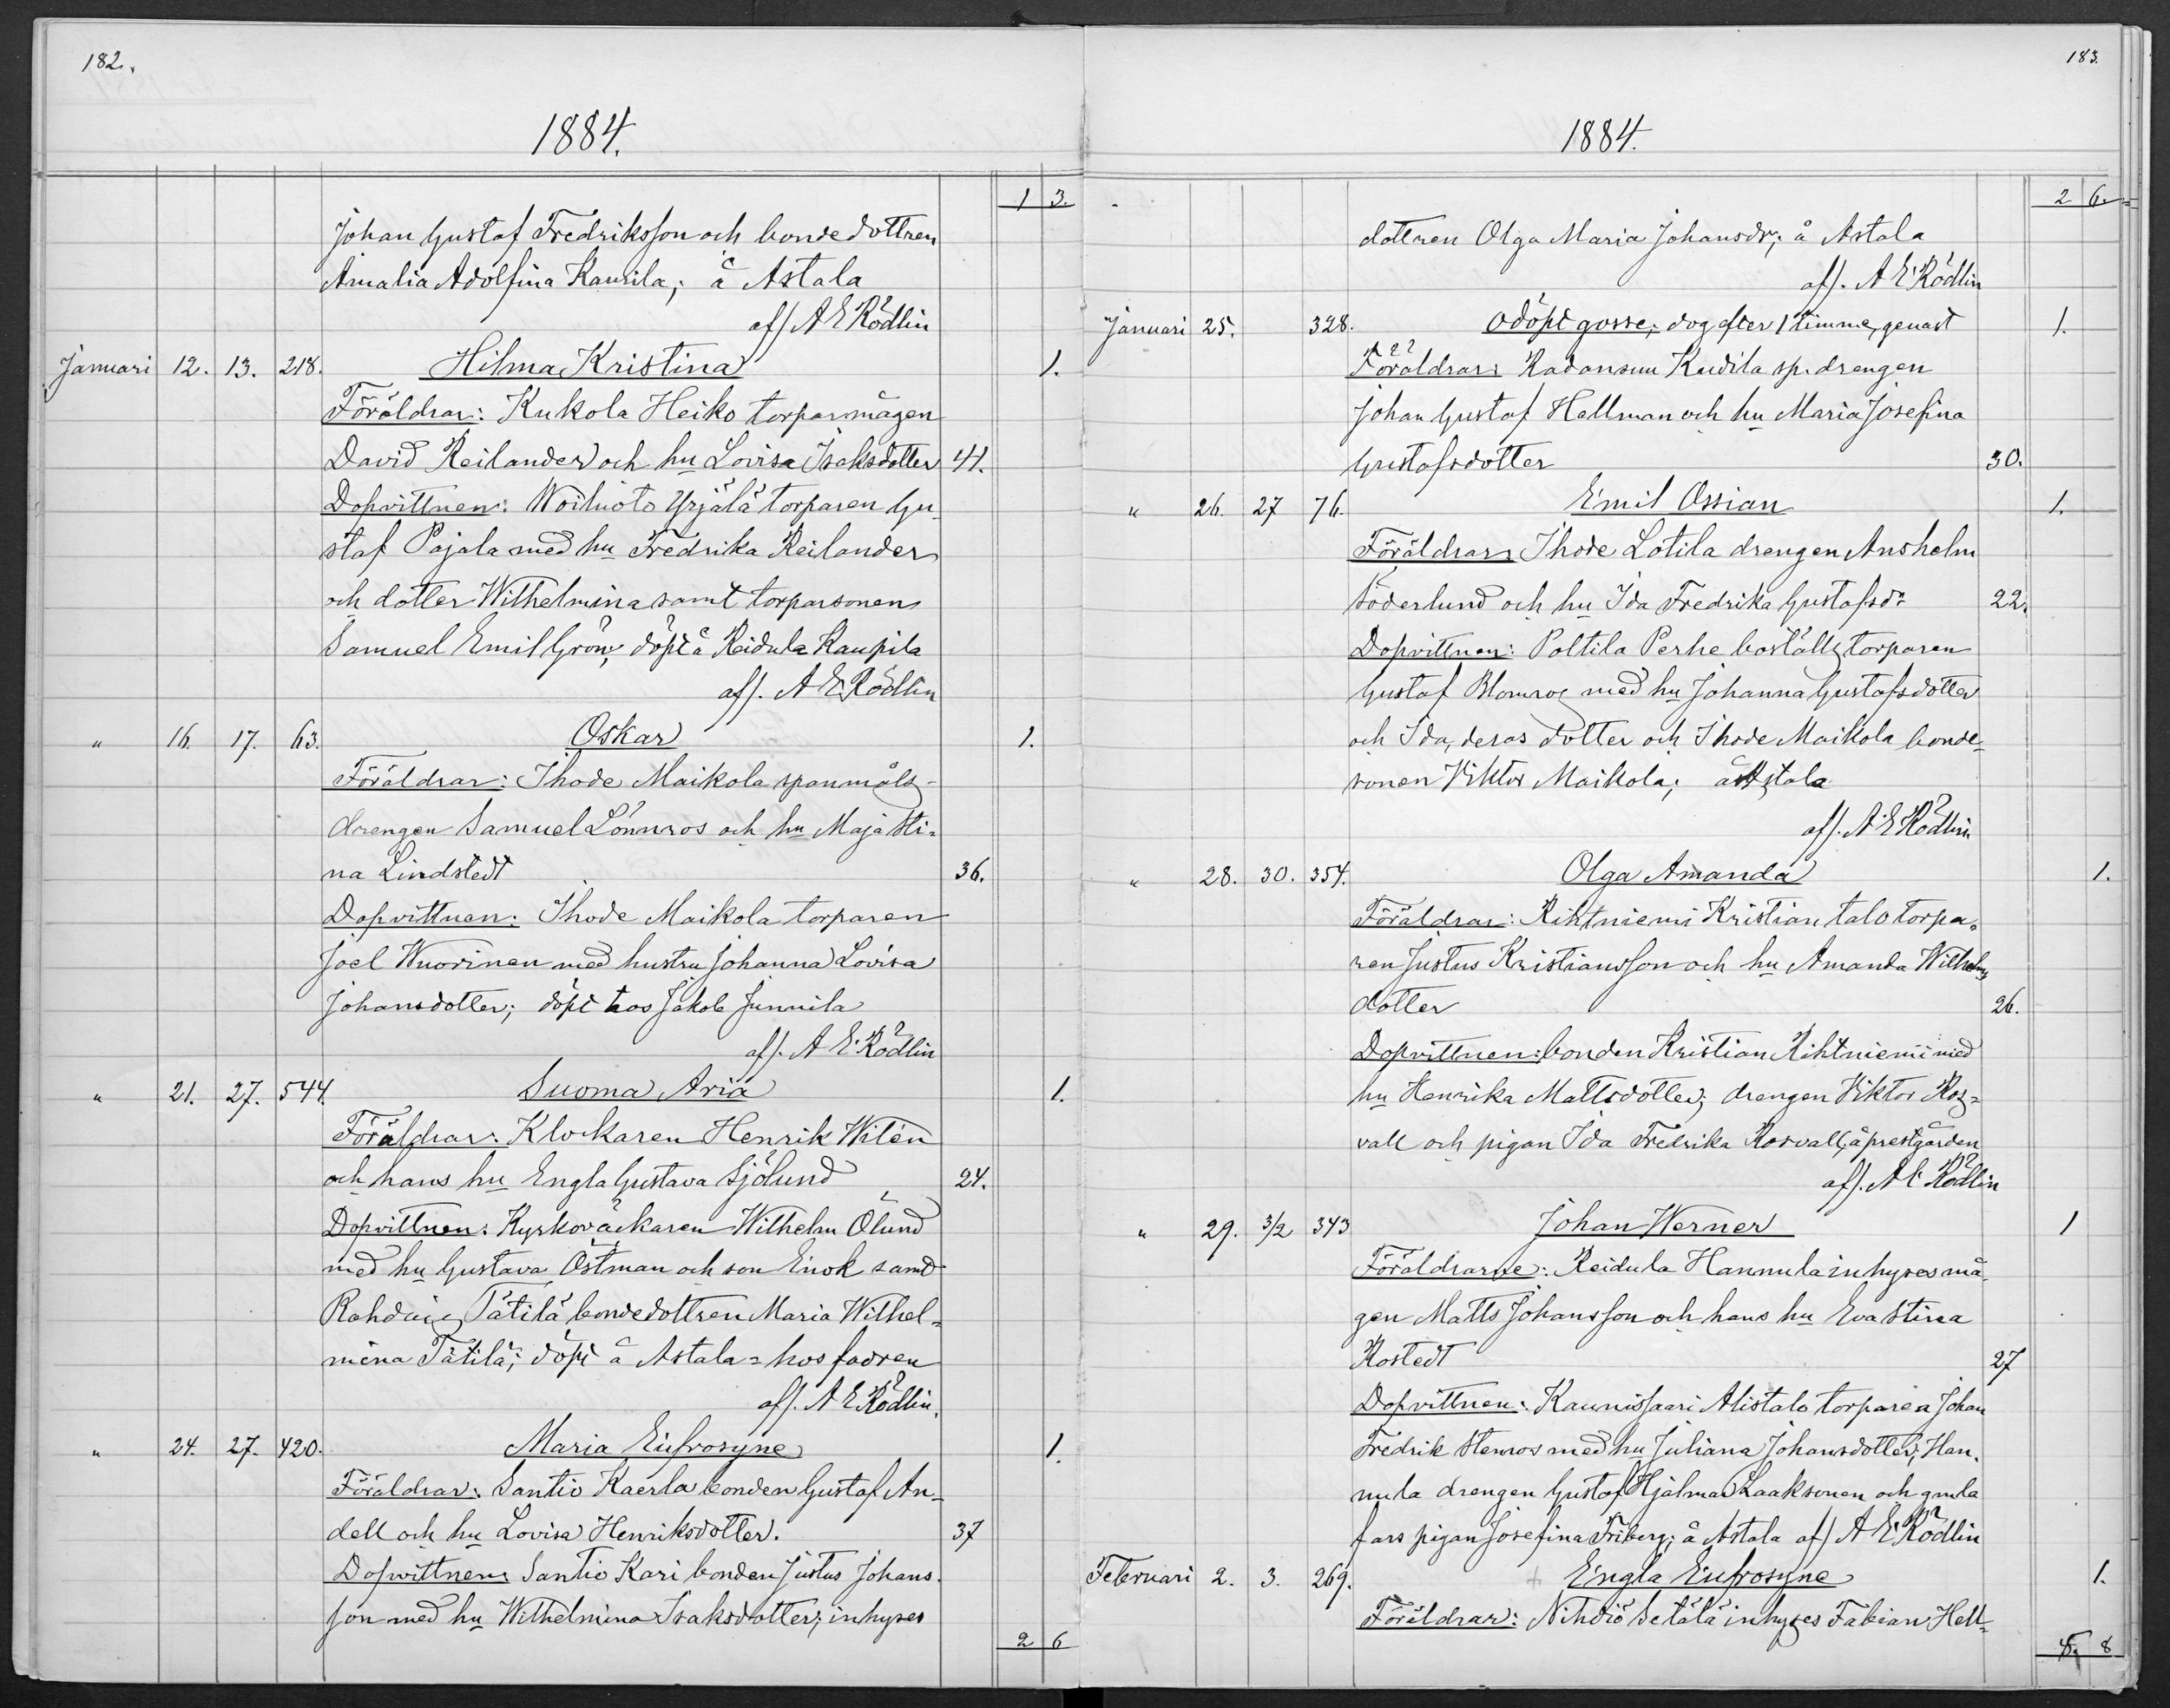 182.
1884.
1 3.
Johan Gustaf Fredriksson och bondedottren
Amalia Adolfina Kaurila; å Astala
af/ A E Rödlin
Januari 12. 13. 218. Hilma Kristina 1.
Föräldrar: Kukola Heiko torparmågen
David Reilander och hu Lovisa Isaksdotter 41.
Dopvittnen: Woiluoto Yrjälä torparen Gu-
staf Pajala med hu Fredrika Reilander
och dotter Wilhelmina samt torparsonen
Samuel Emil Grön; döpt å Reidula Kaupila
af/. A E Rödlin
" 16. 17. 63. Oskar 1.
Föräldrar: Ihode Maikola spanmåls-
drengen Samuel Lönnros och hu Maja Sti-
na Lindstedt 36.
Dopvittnen: Ihode Maikola torparen
Joel Wuorinen med hustru Johanna Lovisa
Johansdotter; döpt hos Jakob Junnila
af/. A E Rödlin
" 21. 27. 544. Suoma Aria 1.
Föräldrar: Klockaren Henrik Wilén
och hans hu Engla Gustava Sjölund 24.
Dopvittnen: Kyrkoväckaren Wilhelm Ölund
med hu Gustava Östman och son Enok samt
Tätilä bondedottren Maria Wilhel-
mina Tätilä; döpt å Astala = hos fadren
af/. A E Rödlin.
" 24. 27. 420. Maria Eufrosyne 1.
Föräldrar: Santio Kaerla bonden Gustaf An-
dell och hu Lovisa Henriksdotter. 37
Dopvittnen: Santio Kari bonden Justus Johans-
son med hu Wilhelmina Isaksdotter; inhyses
2 6
183.
1884.
2 6.
dottren Olga Maria Johansdr; å Astala
af/. A E Rödlin
Januari 25. 328. Odöpt gosse; dog efter 1 timme, genast 1.
Föräldrar: Radansuu Kudila sp. drengen
Johan Gustaf Hellman och hu Maria Josefina
Gustafsdotter 30.
" 26. 27 76. Emil Ossian 1.
Föräldrar: Ihode Lotila drengen Ansholm
Söderlund och hu Ida Fredrika Gustafsdr 22.
Dopvittnen: Poltila Perhe boställs torparen
Gustaf Blomros med hu Johanna Gustafsdotter
och Ida, deras dotter och Ihode Maikola bonde-
sonen Viktor Maikola; å Astala
af/. A E Rödlin
" 28. 30. 354. Olga Amanda 1.
Föräldrar: Rihtniemi Kristian talo torpa-
ren Justus Kristiansson och hu Amanda Wilhelms
dotter 26.
Dopvittnen: bonden Kristian Rihtniemi med
hu Henrika Mattsdotter; drengen Viktor Ros-
vall och pigan Ida Fredrika Rosvall; å prestgården
af/. A E Rödlin
" 29. 3/2 343 Johan Werner 1
Föräldrarne: Reidula Hannula inhyses må-
gen Matts Johansson och hans hu Eva Stina
Rostedt 27
Dopvittnen: Kaunissaari Alistalo torparen Johan
Fredrik Stenros med hu Juliana Johansdotter; Han-
nula drengen Gustaf Hjalmar Laaksonen och gmla
fars pigan Josefina Friberg; å Astala af/ A E Rödlin
Februari 2. 3. 269. + Engla Eufrosyne 1.
Föräldrar: Nihdiö Setälä inhyses Fabian Hell-
5. 8